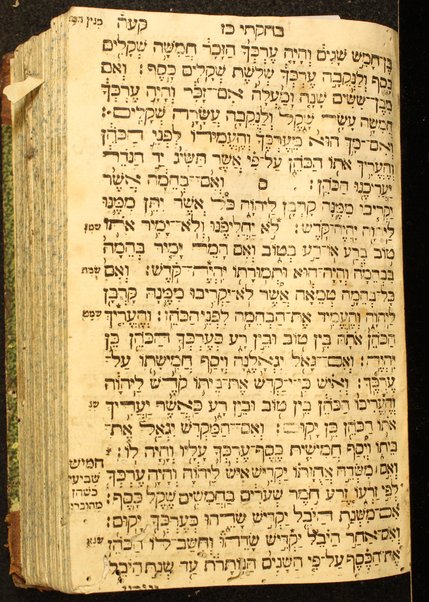 בחקתי כז קערה
בן־חמש שנים והיה ערכך הזכר חמשה שקלים
כסף ולנקבה ערכך שלשת שקלים כסף׃ ואם
מבן־ששים שנה ומעלה אם־זכר והיה ערכך
חמשה עשר שקל ולנקבה עשרה שקלים׃
ואם־מך הוא מערכך והעמידו לפני הכהן
והעריך אתו הכהן על־פי אשר תשיג יד הנדר
יעריכנו הכהן׃ ס ואם־בהמה אשר
יקריבו ממנה קרבן ליהוה כל אשר יתן ממנו
ליהוה יהיה־קדש׃ לא יחליפנו ולא־ימיר אתו
טוב ברע או־רע בטוב ואם־המר ימיר בהמה
בבהמה והיה־הוא ותמורתו יהיה־קדש׃ ואם
כל־בהמה טמאה אשר לא־יקריבו ממנה קרבן
ליהוה והעמיד את־הבהמה לפני הכהן׃ והעריך
הכהן אתה בין טוב ובין רע כערכך הכהן כן
יהיה׃ ואם־גאל יגאלנה ויסף חמישתו על־
ערכך׃ ואיש כי־יקדש את־ביתו קדש ליהוה
והעריכו הכהן בין טוב ובין רע כאשר יעריך
אתו הכהן כן יקום׃ ואם־המקדיש יגאל את־
ביתו ויסף חמישית כסף־ערכך עליו והיה לו׃
ואם משדה אחזתו יקדיש איש ליהוה והיה ערכך
לפי זרעו זרע חמר שערים בחמשים שקל כסף׃
אם־משנת היבל יקדיש שדהו כערכך יקום׃
ואם־אחר היבל יקדיש שדהו וחשב־לו הכהן
את־הכסף על־פי השנים הנותרת עד שנת היבל
שמט
שנ
חמישי
שביעי
כשהן
מחוברי
שנא